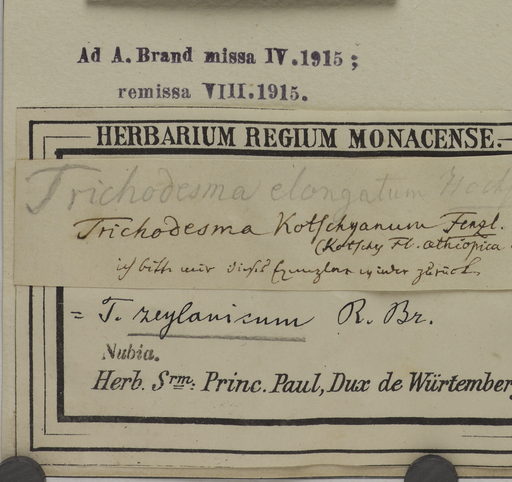 Ad A. Brand missa IV.1915;
remissa VIII.1915.
HERBARIUM REGIUM MONACENSE.
Trichodesma elongatum Hochs
Trichodesma Kotschyanum Fenzl.
(Kotschy Fl. æthiopica
ich bitte mir dieses Exemplar wieder zurück
= T. zeylanicum R. Br.
Nubia.
Herb. Srm: Princ. Paul, Dux de Würtember